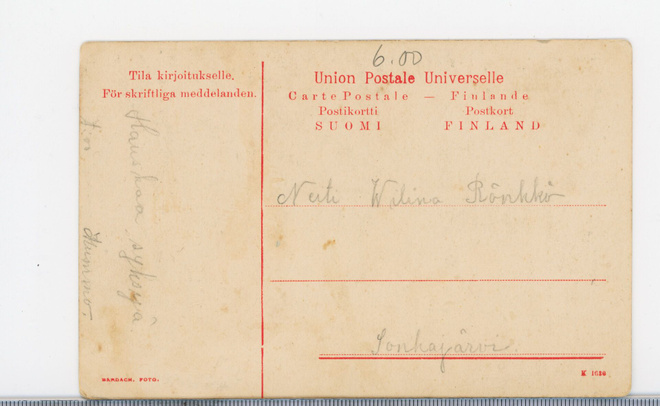 6.00
Tila kirjoitukselle.
För skriftliga meddelanden.
Union Postale Universelle
Carte Postale — Finlande
Postikortti Postkort
SUOMI FINLAND
Hauskaa syksyä
Neiti Wilina Rönkkö
Sonkajärvi.
K 1620